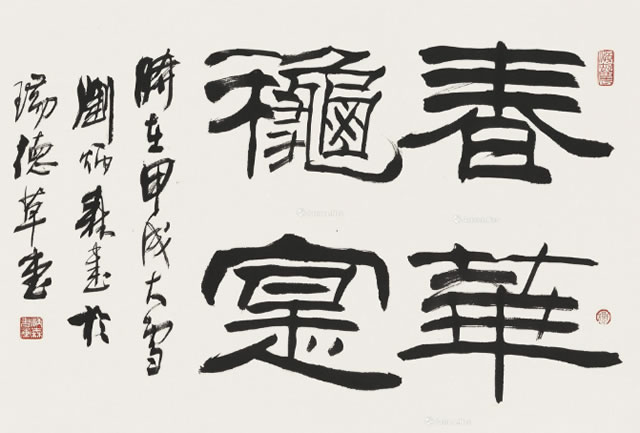 春華
穐寔
時在甲戌大雪
劉炳森書於
瑞德草堂